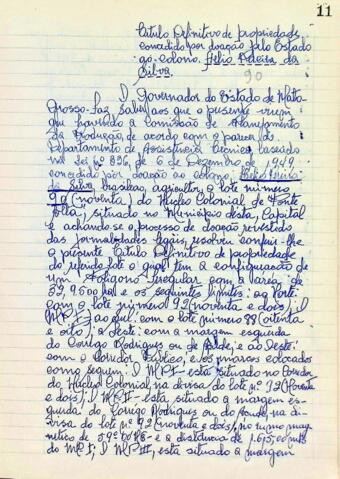 11
Titulo Definitivo de propriedade
concedido por doação pelo Estado
ao colono Helio Pereira da
Silva.
90
O Governador do Estado de Matto-
Grosso faz saber aos que o presente virem
que havendo a Comissão de Planejamento
da Produção, de acordo com o parecer do
Departamento de Assistencia técnica, baseado
na Lei nº 836, de 6 de Dezembro de 1949
concedido por doação ao colono: Helio Pereira
da Silva, brasileiro, agricultor, o lote numero
90 (noventa) do Núcleo Colonial de Fonte
situado no Municipio desta Capital
e achando-se o processo de doação revestido
das formalidades legais, resolveu conferir-lhe
o presente Titulo Definitivo de propriedade
do referido lote o qual tem a configuração de
um Poligono irregular com a area de
33,9600 e os seguintes limites: ao Norte:
com o lote numero 92 (noventa e dois); O
ao Sul: com o lote numero 88 (oitenta
e oito); a Leste: com a margem esquerda
do Corrego Rodrigues ou do e ao Oeste:
com o Corredor Público, e os marcos colocados
como seguem: O MPI - está situado no Corredor
do Núcleo Colonial, na divisa do lote nº 92 (Noventa
e dois); O MPII - está situado a margem es-
querda do Corrego Rodrigues ou do na di-
visa do lote nº 92 (noventa e dois), no rumo mag-
netico de e a distancia de 1.615,00 mts
do MPI; O MPIII, está situado a margem